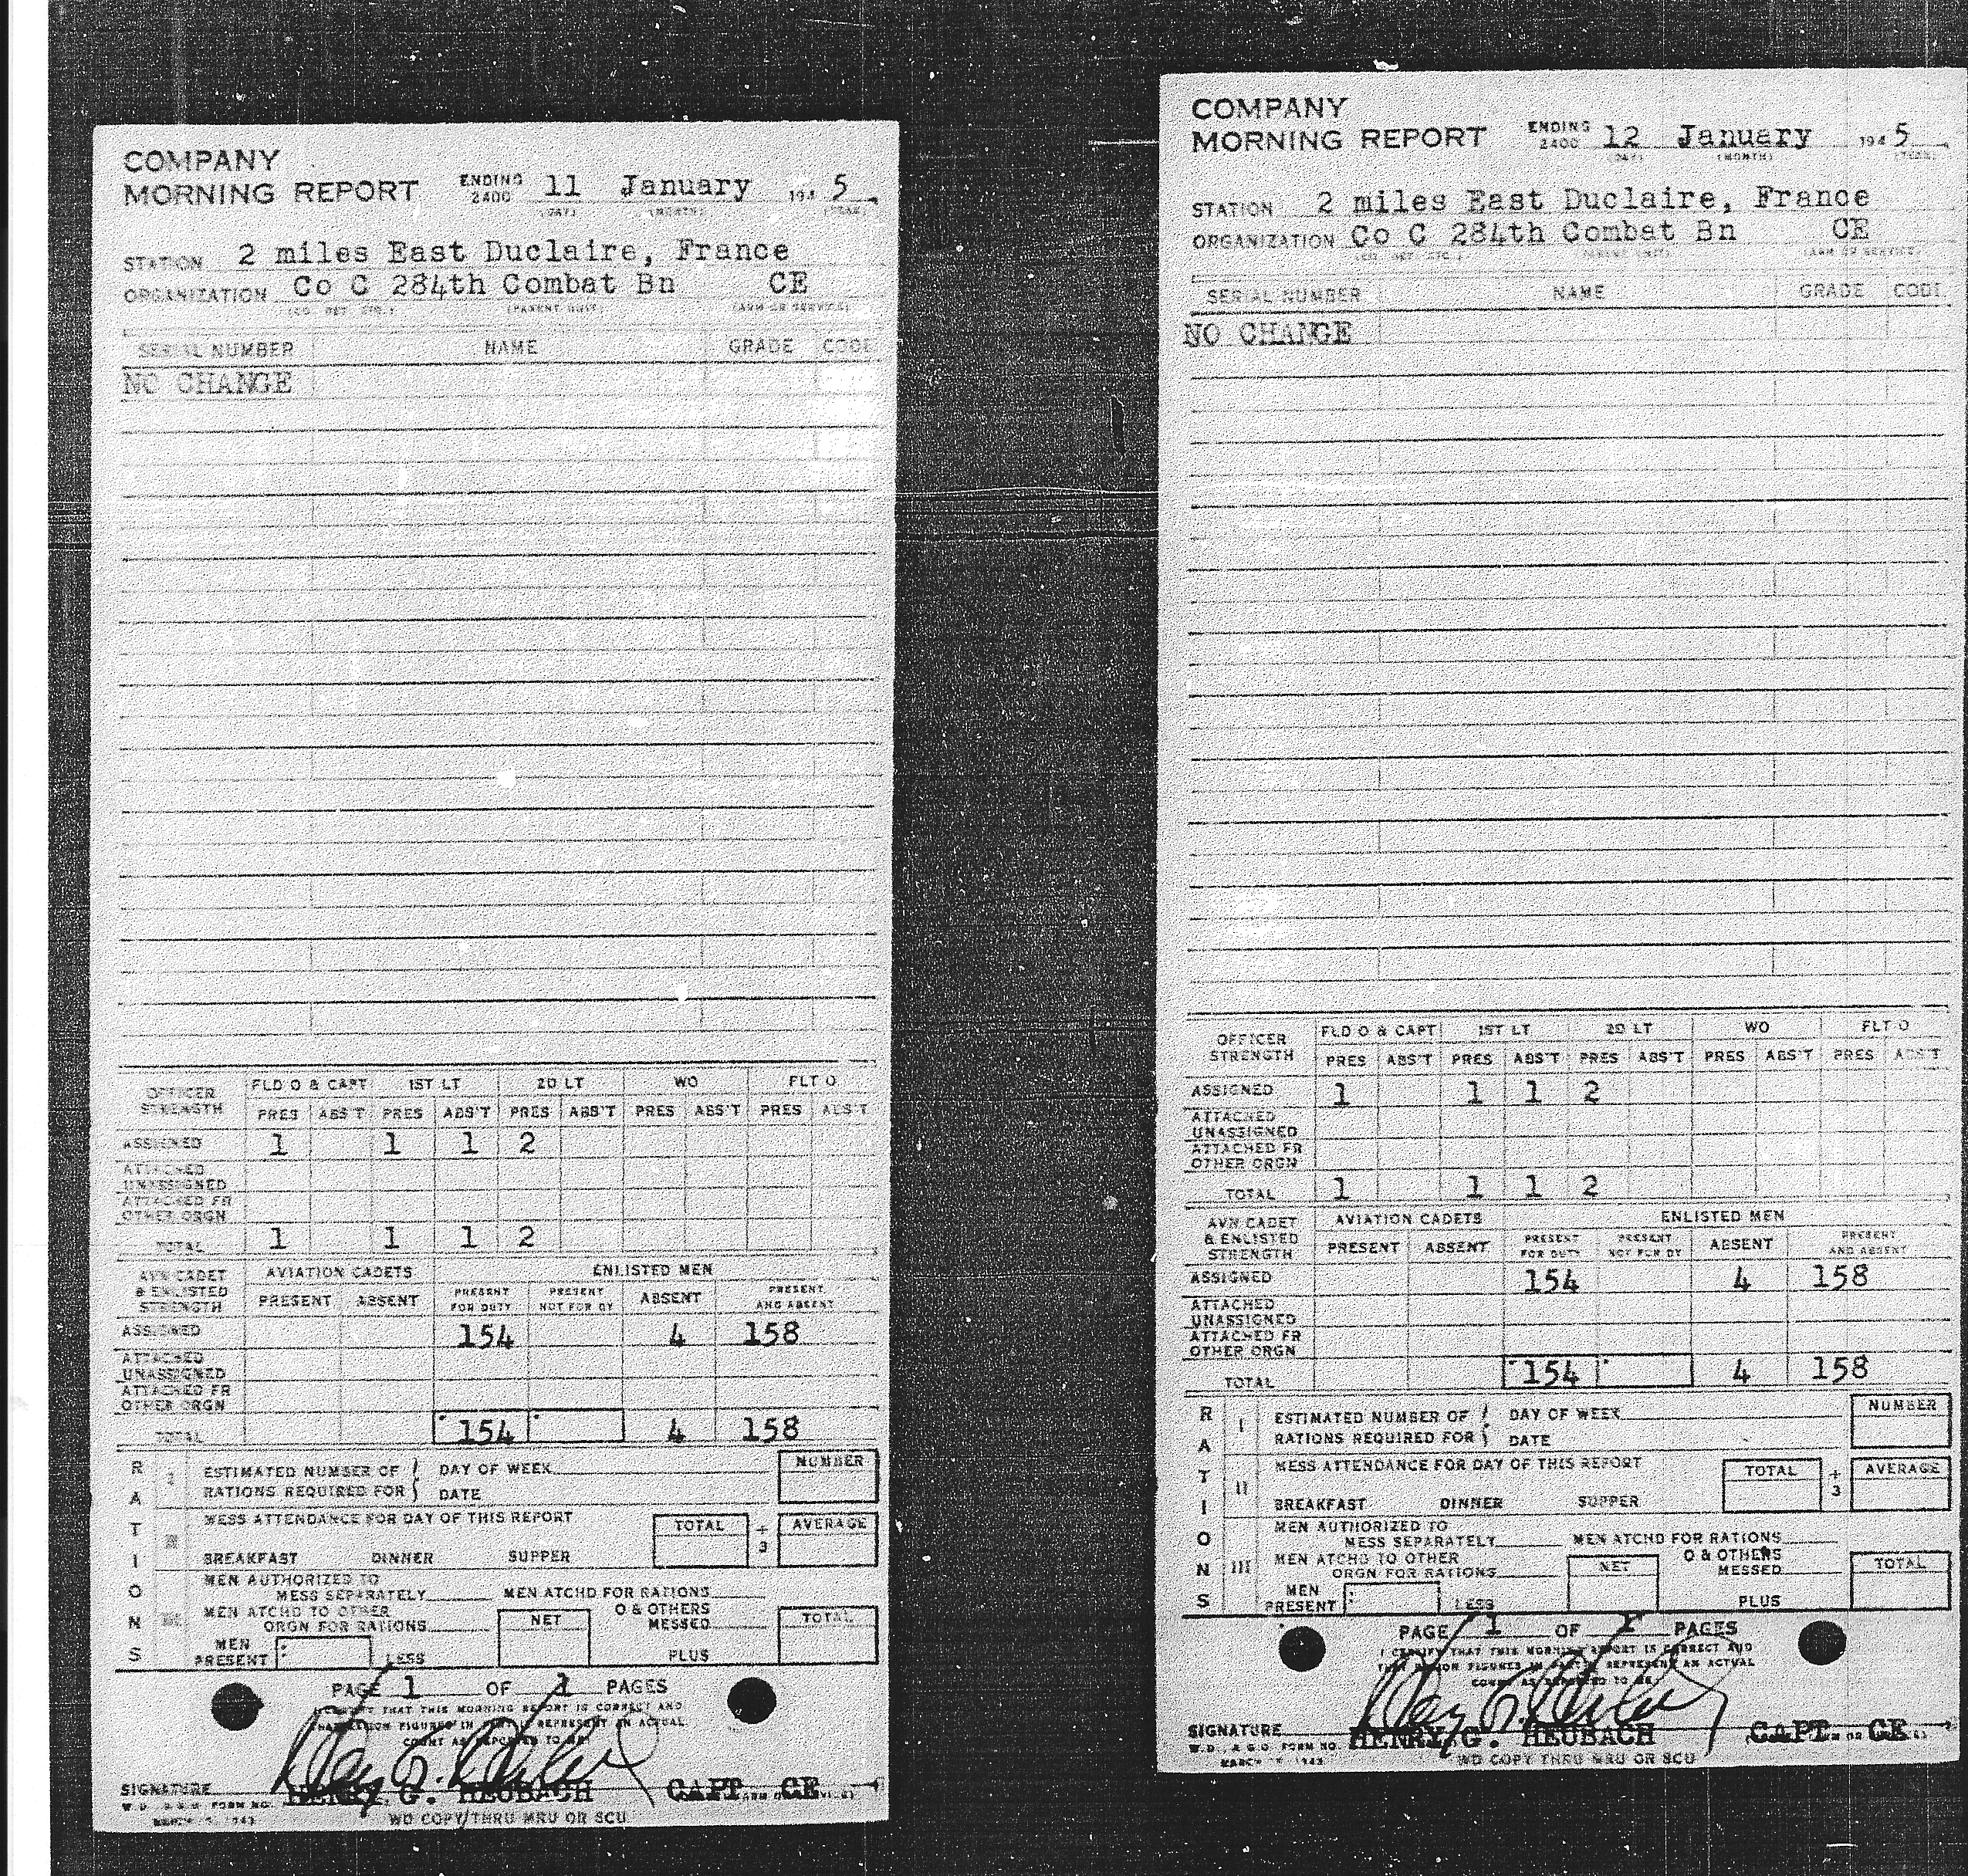 COMPANY
MORNING REPORT ENDING 2400 11 January 1945
(DAY) (MONTH) (YEAR)
STATION 2 miles East Duclaire, France
ORGANIZATION Co C 284th Combat Bn CE
(CO. DET. ETC.) (PARENT UNIT) (ARM OR SERVICE)
SERIAL NUMBER NAME GRADE CODE
NO CHANGE
OFFICER STRENGTH FLD O & CAPT 1ST LT 2D LT WO FLT O
PRES ABS'T PRES ABS'T PRES ABS'T PRES ABS'T PRES ABS'T
ASSIGNED 1 1 1 2
ATTACHED UNASSIGNED
ATTACHED FR OTHER ORGN
TOTAL 1 1 1 2
AVN CADET & ENLISTED STRENGTH AVIATION CADETS ENLISTED MEN
PRESENT ABSENT PRESENT FOR DUTY PRESENT NOT FOR DY ABSENT PRESENT AND ABSENT
ASSIGNED 154 4 158
ATTACHED UNASSIGNED
ATTACHED FR OTHER ORGN
TOTAL 154 4 158
RATIONS
I ESTIMATED NUMBER OF RATIONS REQUIRED FOR DAY OF WEEK DATE NUMBER
II MESS ATTENDANCE FOR DAY OF THIS REPORT TOTAL ÷ 3 AVERAGE
BREAKFAST DINNER SUPPER
III MEN AUTHORIZED TO MESS SEPARATELY MEN ATCHD FOR RATIONS
MEN ATCHD TO OTHER ORGN FOR RATIONS NET O & OTHERS MESSED TOTAL
MEN PRESENT LESS PLUS
PAGE 1 OF 1 PAGES
I CERTIFY THAT THIS MORNING REPORT IS CORRECT AND
THAT RATION FIGURES IN PART III REPRESENT AN ACTUAL
COUNT AS REPORTED TO ME
SIGNATURE HENRY G. HEUBACH CAPT CE
W.D., A.G.O. FORM NO.
MARCH 1943
WD COPY THRU MRU OR SCU
COMPANY
MORNING REPORT ENDING 2400 12 January 1945
(DAY) (MONTH) (YEAR)
STATION 2 miles East Duclaire, France
ORGANIZATION Co C 284th Combat Bn CE
(CO. DET. ETC.) (PARENT UNIT) (ARM OR SERVICE)
SERIAL NUMBER NAME GRADE CODE
NO CHANGE
OFFICER STRENGTH FLD O & CAPT 1ST LT 2D LT WO FLT O
PRES ABS'T PRES ABS'T PRES ABS'T PRES ABS'T PRES ABS'T
ASSIGNED 1 1 1 2
ATTACHED UNASSIGNED
ATTACHED FR OTHER ORGN
TOTAL 1 1 1 2
AVN CADET & ENLISTED STRENGTH AVIATION CADETS ENLISTED MEN
PRESENT ABSENT PRESENT FOR DUTY PRESENT NOT FOR DY ABSENT PRESENT AND ABSENT
ASSIGNED 154 4 158
ATTACHED UNASSIGNED
ATTACHED FR OTHER ORGN
TOTAL 154 4 158
RATIONS
I ESTIMATED NUMBER OF RATIONS REQUIRED FOR DAY OF WEEK DATE NUMBER
II MESS ATTENDANCE FOR DAY OF THIS REPORT TOTAL ÷ 3 AVERAGE
BREAKFAST DINNER SUPPER
III MEN AUTHORIZED TO MESS SEPARATELY MEN ATCHD FOR RATIONS
MEN ATCHD TO OTHER ORGN FOR RATIONS NET O & OTHERS MESSED TOTAL
MEN PRESENT LESS PLUS
PAGE 1 OF 1 PAGES
I CERTIFY THAT THIS MORNING REPORT IS CORRECT AND
THAT RATION FIGURES IN PART III REPRESENT AN ACTUAL
COUNT AS REPORTED TO ME
SIGNATURE HENRY G. HEUBACH CAPT CE
W.D., A.G.O. FORM NO.
MARCH 1943
WD COPY THRU MRU OR SCU